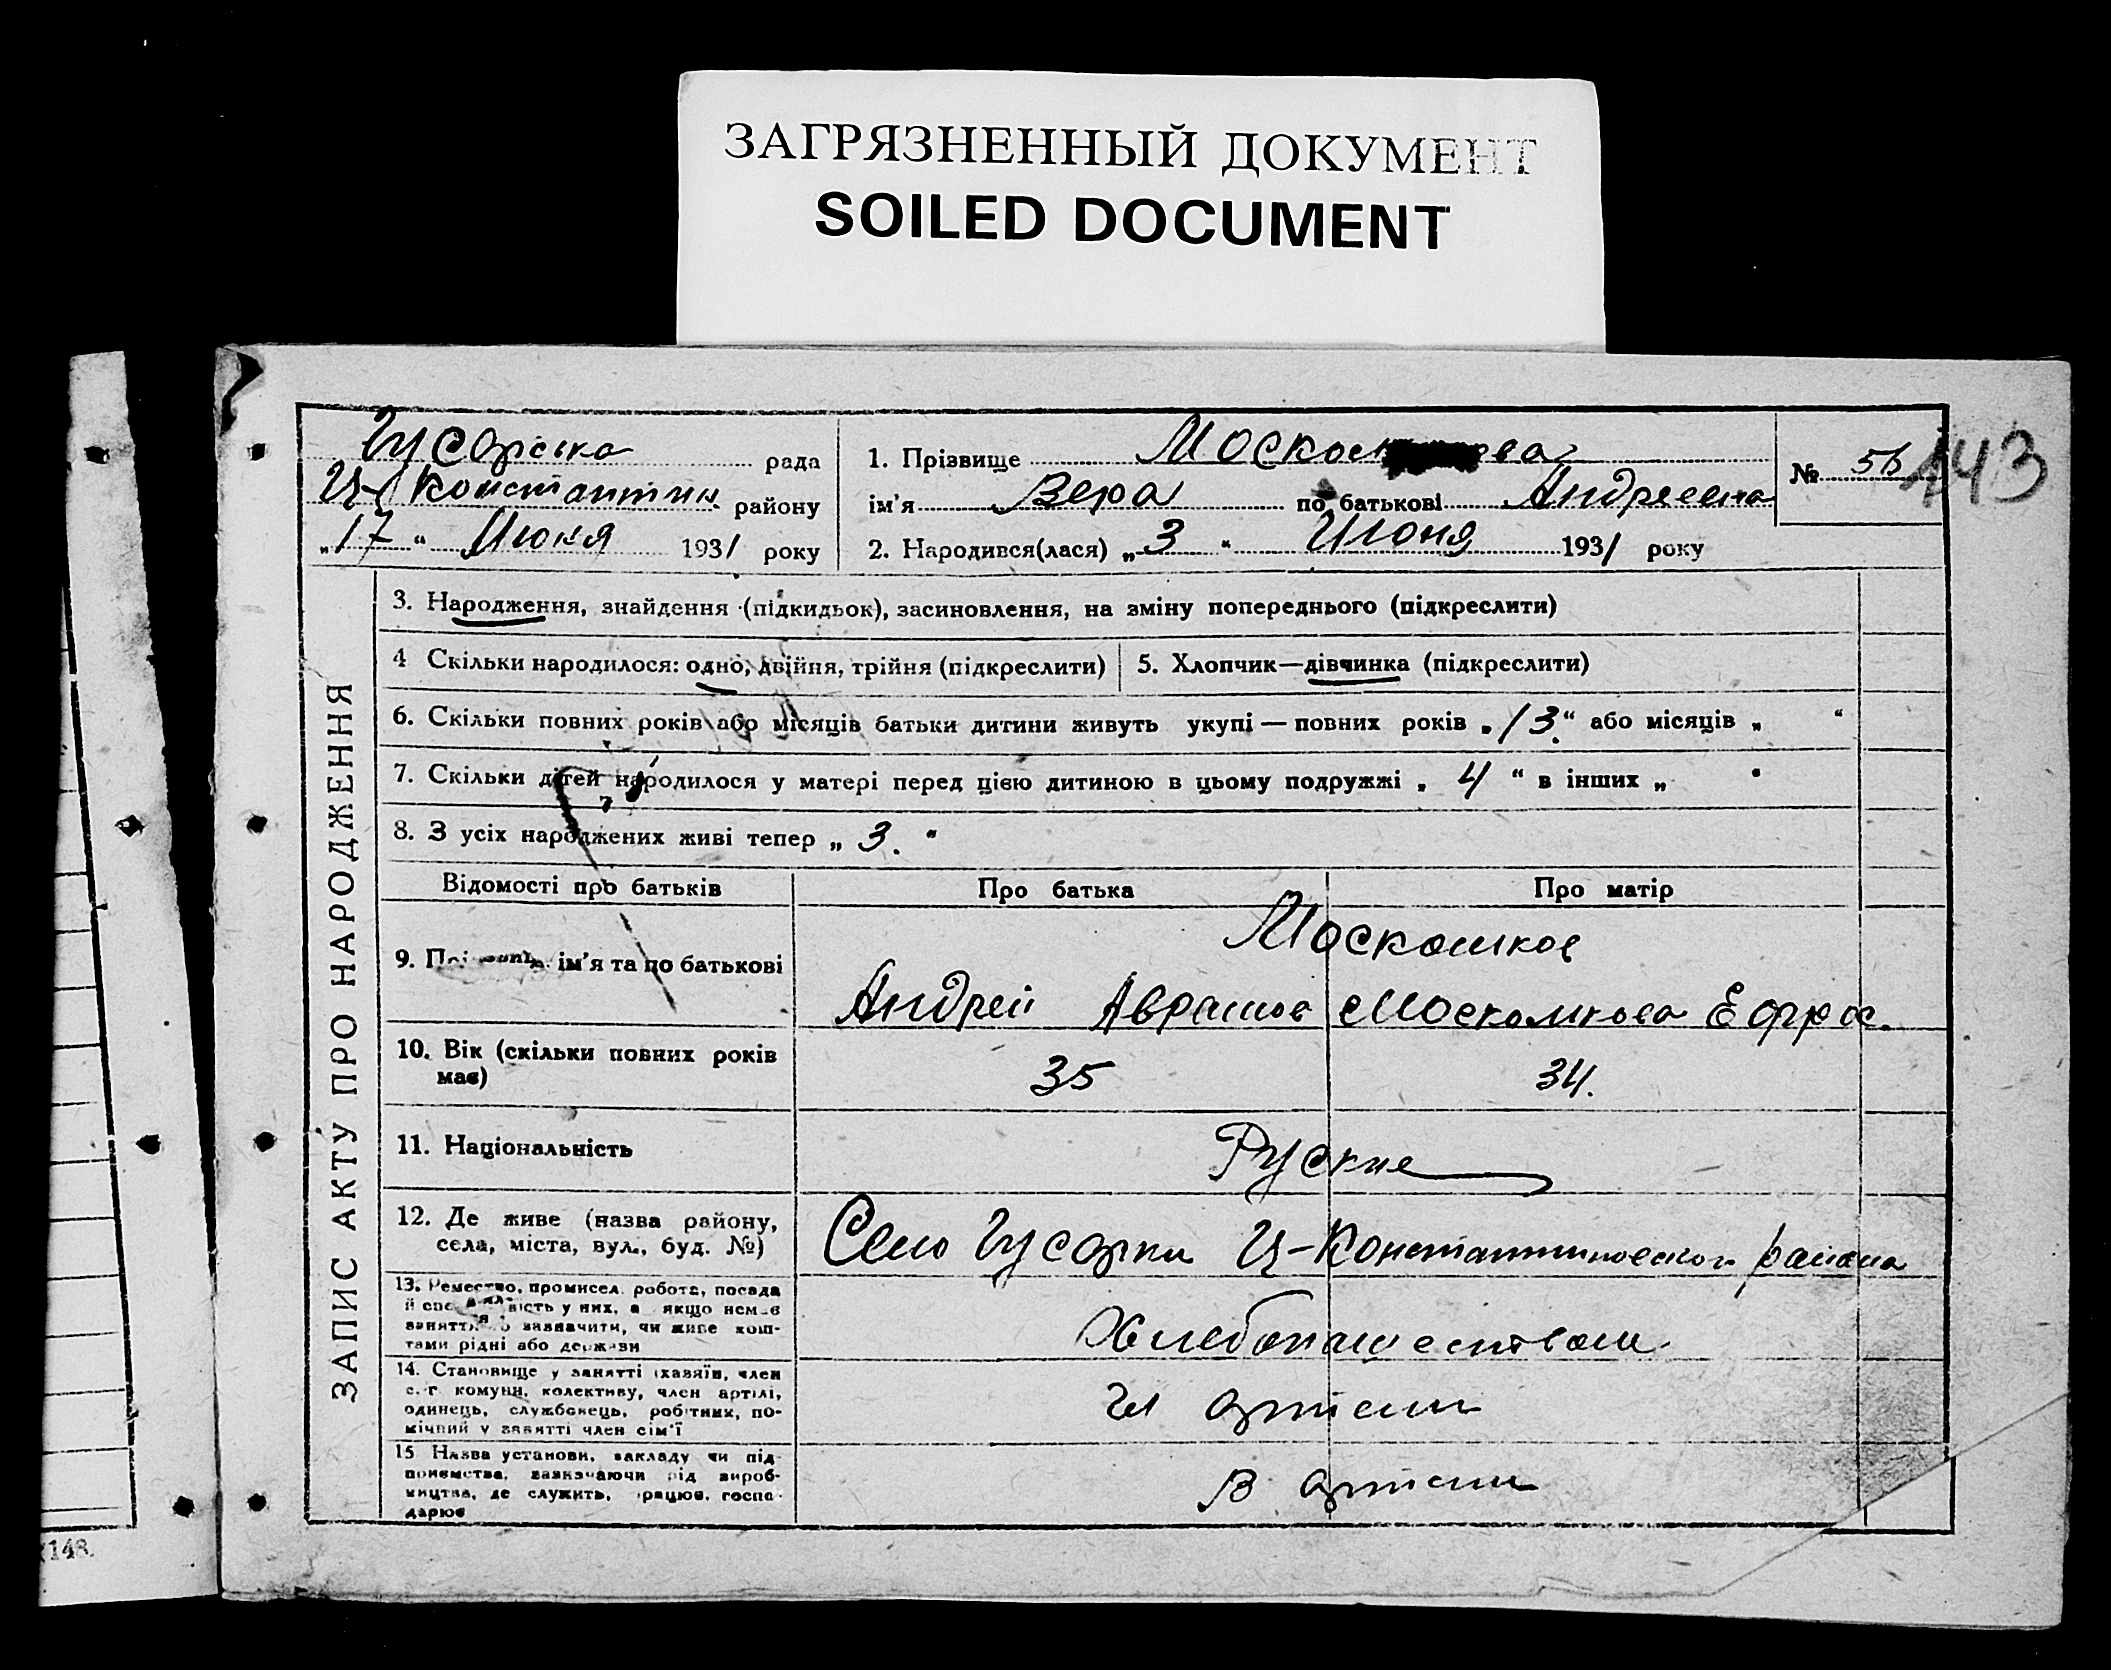 ЗАГРЯЗНЕННЫЙ ДОКУМЕНТ
SOILED DOCUMENT
143
Гусарська рада
Ц-Константин. району
„17“ Июня 1931 року
1. Прізвище
ім'я Вера по батькові Андреевна
2. Народився(лася) „3“ Июня 1931 року
№ 56
ЗАПИС АКТУ ПРО НАРОДЖЕННЯ
3. Народження, знайдення (підкидьок), засиновлення, на зміну попереднього (підкреслити)
4 Скільки народилося: одно, двійня, трійня (підкреслити)
5. Хлопчик—дівчинка (підкреслити)
6. Скільки повних років або місяців батьки дитини живуть укупі — повних років „13.“ або місяців „ “
7. Скільки дітей народилося у матері перед цією дитиною в цьому подружжі „ 4 “ в інших „ “
8. З усіх народжених живі тепер „ 3. “
Відомості про батьків
Про батька
Про матір
9. ім'я та по батькові
Москалков
Андрей Аврамов
Москалкова Ефрос.
10. Вік (скільки повних років
має)
35
34.
11. Національність
Руские
12. Де живе (назва району,
села, міста, вул., буд. №)
Село Гусарки Ц-Константиновского района
13. Ремество, промисел, робота, посада
й вність у них, а якщо немає
заняття зазначити, чи живе кош-
тами рідні або держави
Хлебопашеством
14. Становище у занятті (хазяїн, член
с.-г комуни, колективу, член артілі,
одинець, службовець, робітник, по-
мічний у занятті член сім'ї
Чл артели
15 Назва установи, закладу чи під-
приємства, зазначаючи рід вироб-
ництва, де служить, працює, госпо-
дарює
В артели
148.